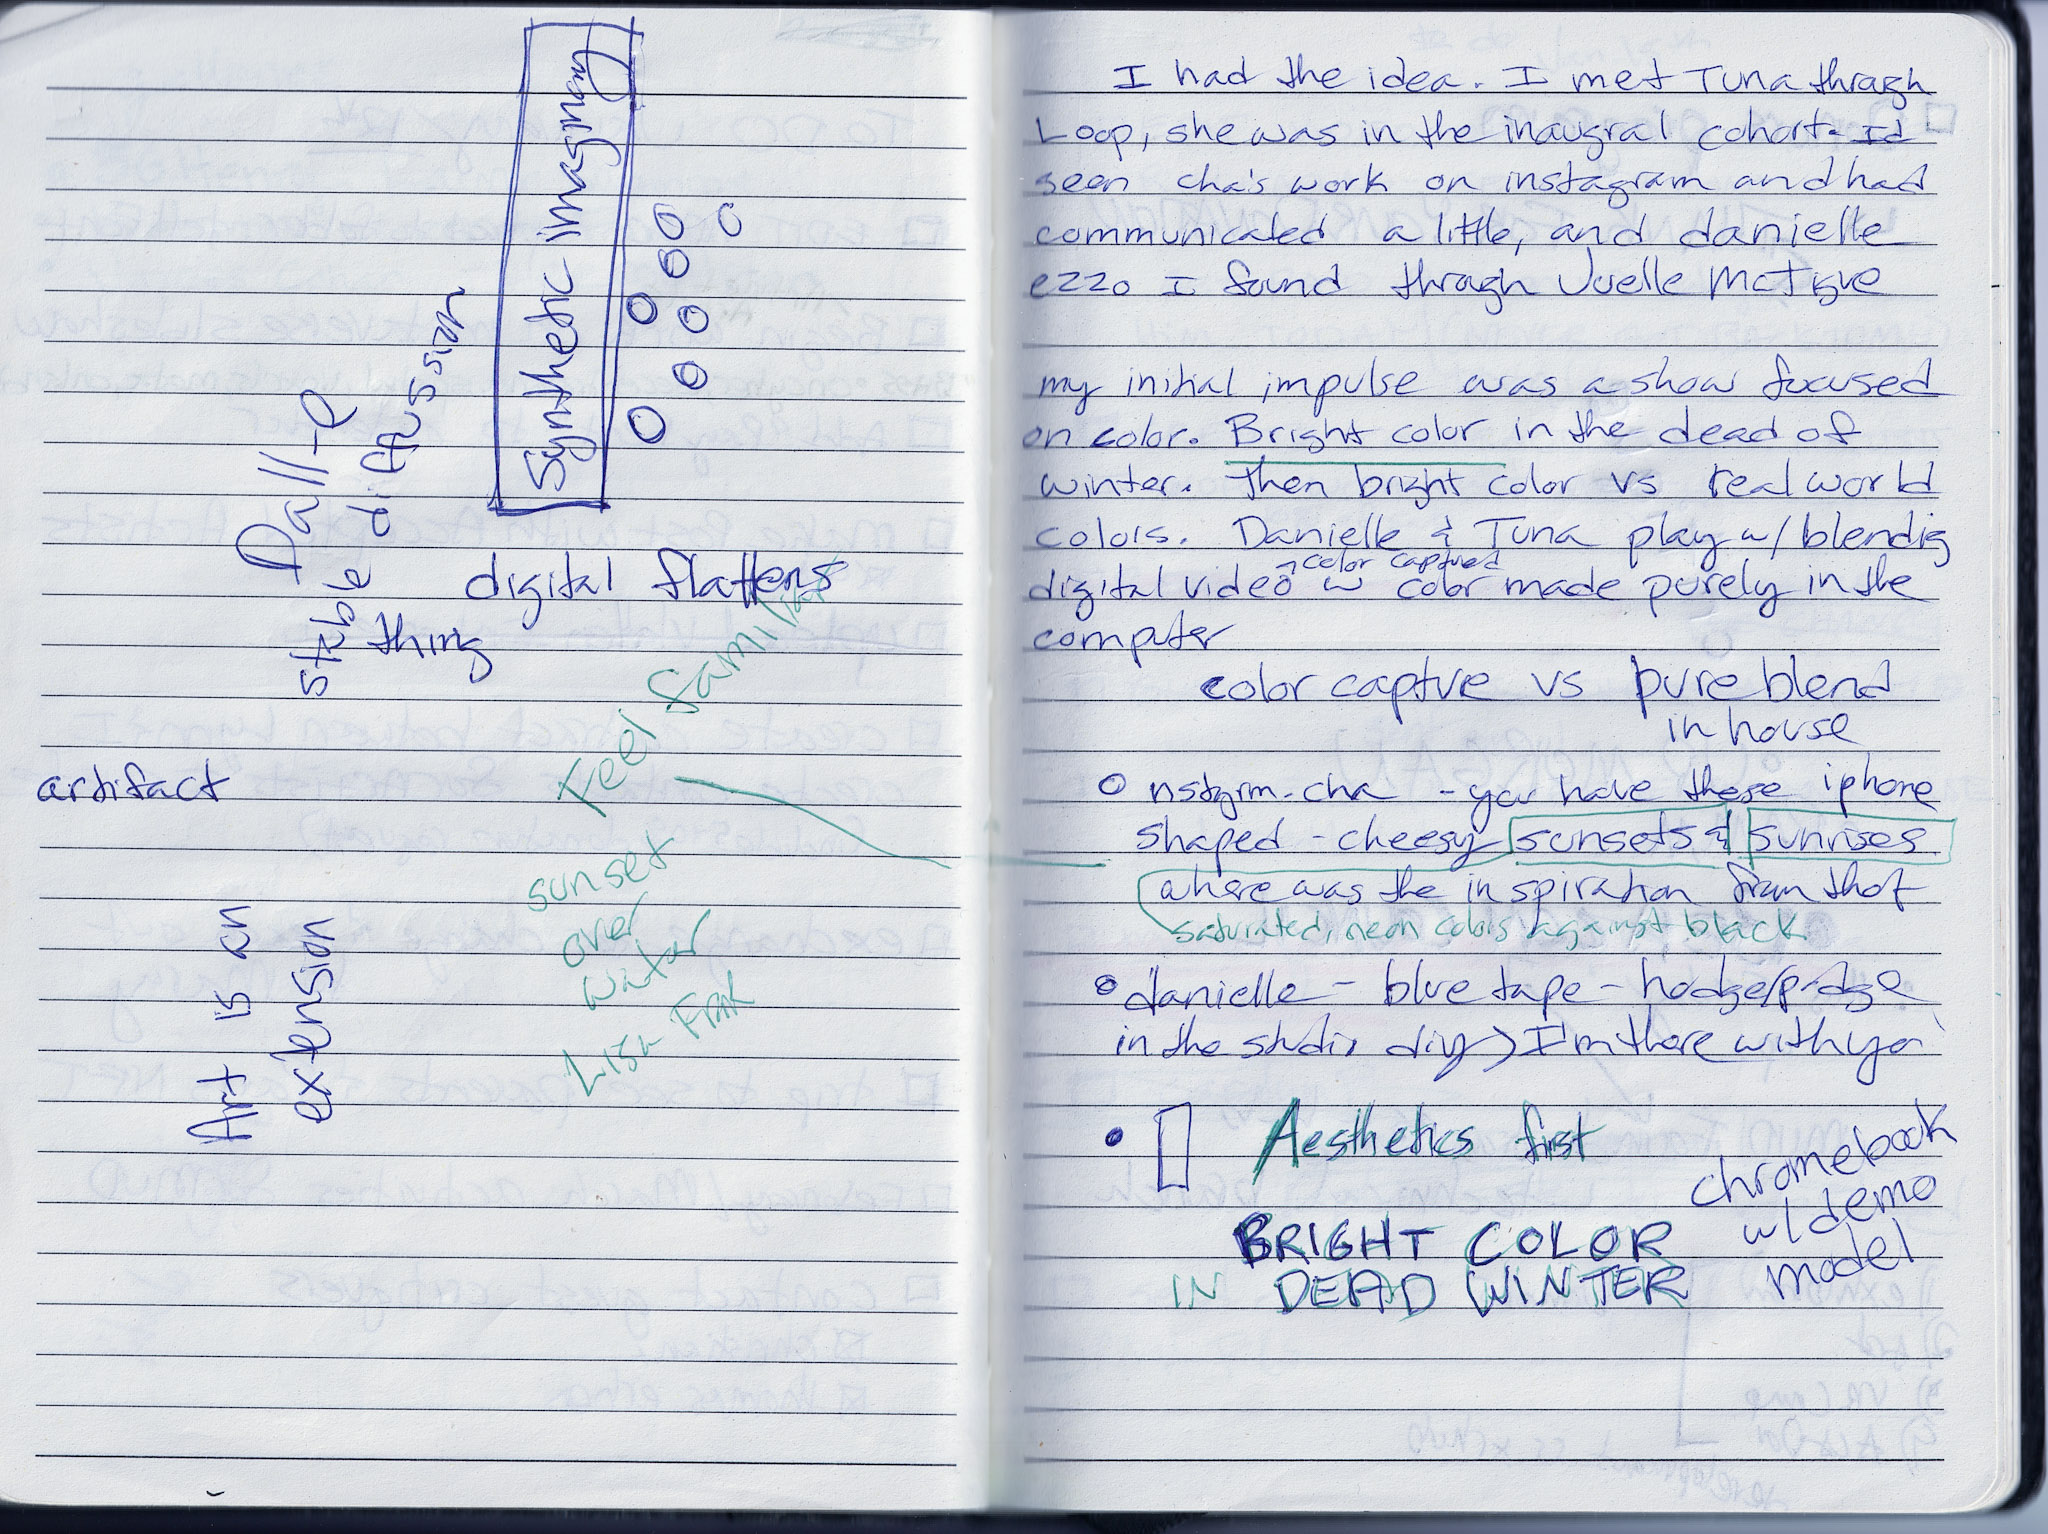 Synthetic imaginary
Dall-e
stable diffussion
digital flattens
thing
Feel familiar
artifact
sunset
over
water
Lisa Frank
Art is an
extension
I had the idea. I met Tuna through
Loop, she was in the inaugral cohort. Id
seen cha's work on instagram and had
communicated a little, and danielle
ezzo I found through Juelle McTigue
my initial impulse was a show focused
on color. Bright color in the dead of
winter. Then bright color vs real world
colors. Danielle & Tuna play w/ blendig
color captured
digital video w color made purely in the
computer
color captue vs pure blend
in house
nstgrm.cha - you have these iphone
shaped - cheesy sunsets & sunrises
where was the inspiration from that
saturated, neon colors against black
danielle - blue tape - hodge/podge
in the studio diy > I'm there with you
Aesthetics first
chromebook
w/ demo
model
BRIGHT COLOR
IN DEAD WINTER